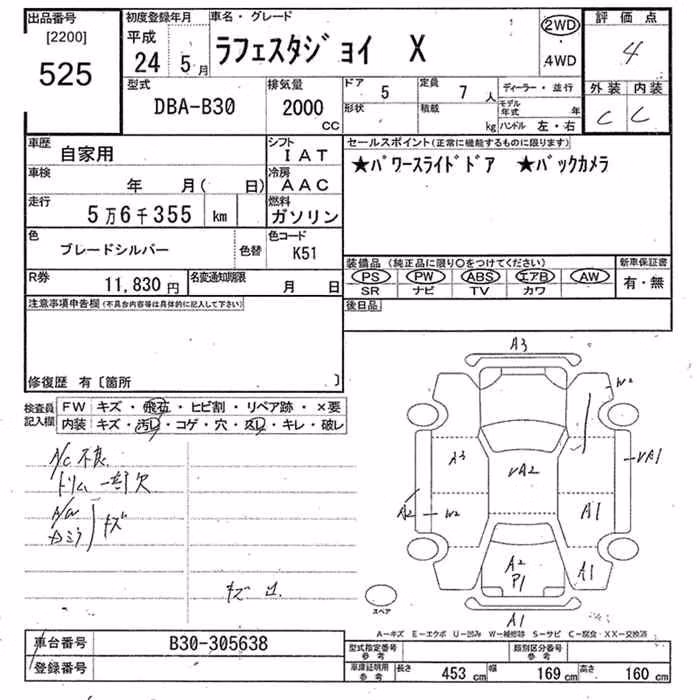 出品番号
[2200]
525
初度登録年月
平成
24 5月
車名・グレード
ラフェスタジョイ X
2WD
・
4WD
評価点
4
外装 内装
C C
型式
DBA-B30
排気量
2000
CC
ドア
5
定員
7人
形状
積載
kg
ディーラー・並行
モデル年式 年
ハンドル 左・右
車歴
自家用
シフト
IAT
車検
年 月( 日)
冷房
AAC
走行
5万6千355 km
燃料
ガソリン
色
ブレードシルバー
色替
色コード
K51
R券
11,830円
名変通知期限
月 日
セールスポイント(正常に機能するものに限ります)
★パワースライドドア ★バックカメラ
装備品(純正品に限り○をつけてください)
PS PW ABS エアB AW
SR ナビ TV カワ
新車保証書
有・無
後日品
注意事項申告欄(不具合内容等は具体的に記入して下さい)
修復歴 有〔箇所 〕
検査員
記入欄
FW キズ・飛石・ヒビ割・リペア跡・×要
内装 キズ・汚レ・コゲ・穴・スレ・キレ・破レ
A/C 不良
トリム 一部欠
キズ
A3
W2
A3
VA2
VA1
A2
W2
A1
A2
P1
A1
A1
スペア
A−キズ E−エクボ U−凹み W−補修跡 S−サビ C−腐食・XX−交換済
車台番号
B30-305638
登録番号
型式指定番号
参考
類別区分番号
参考
車庫証明用
参考
長さ 453 cm
幅 169 cm
高さ 160 cm